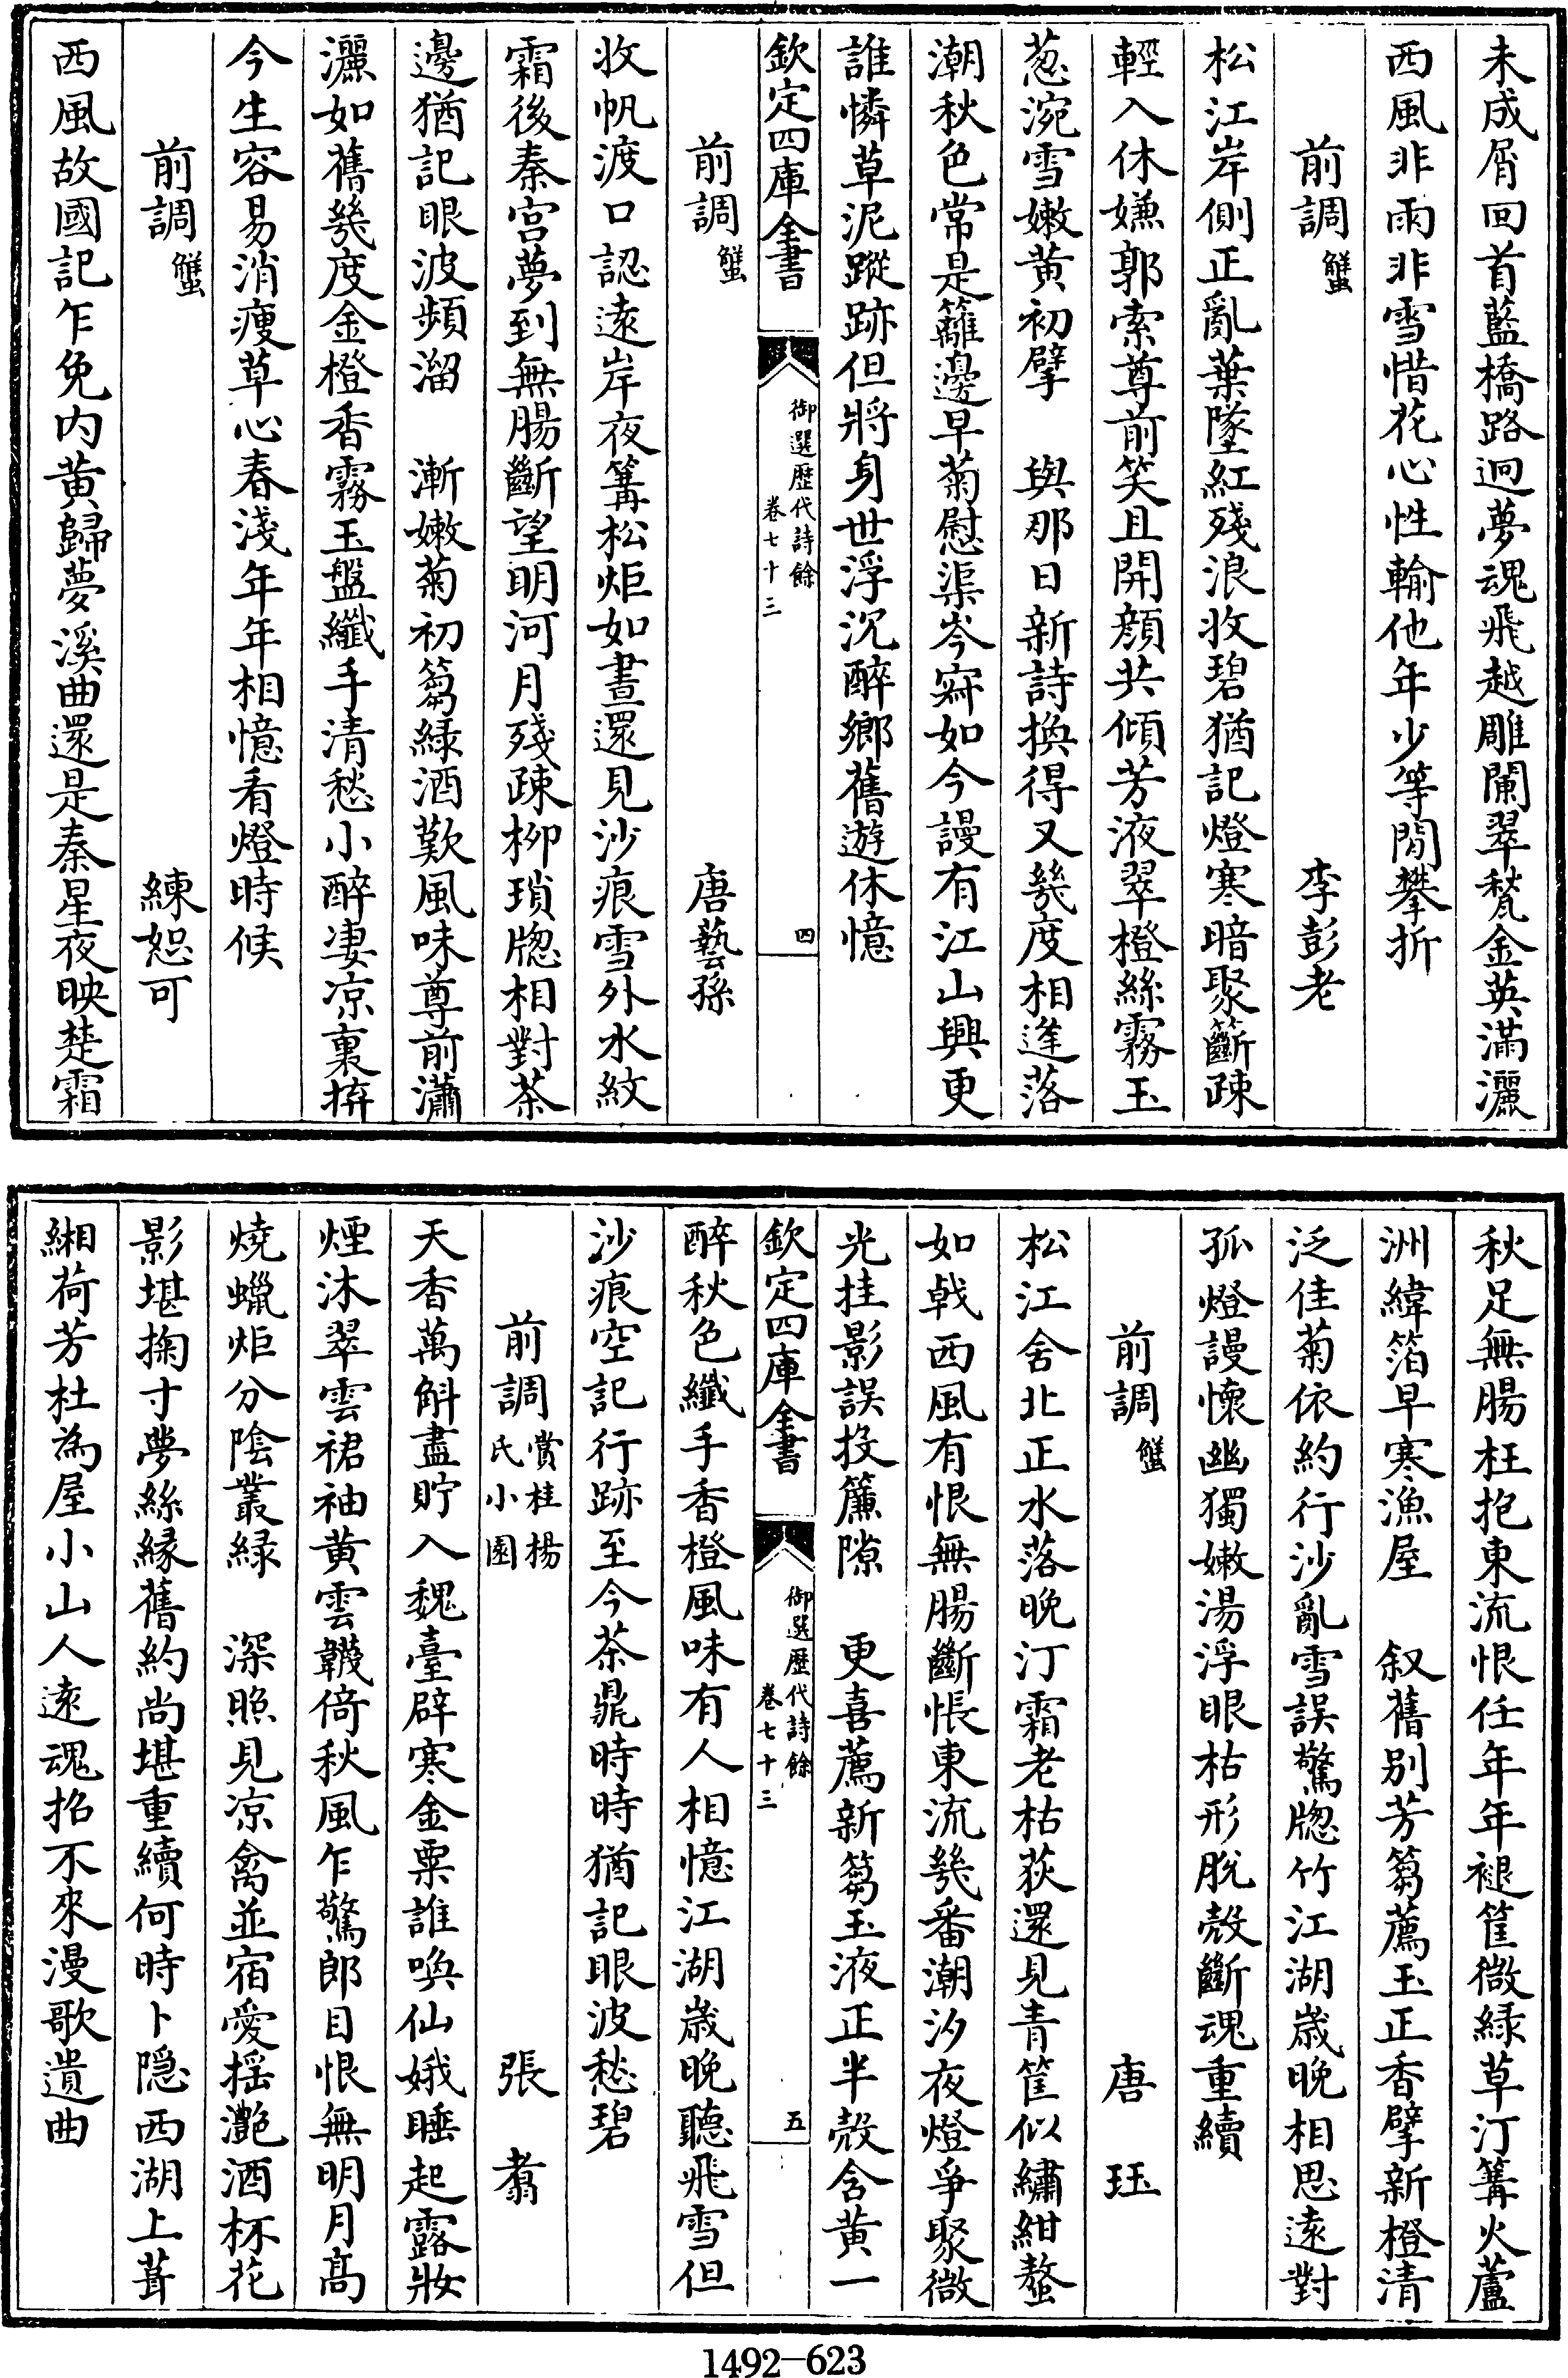 未成屑回首藍橋路迥夢魂飛越雕闌翠甃金英滿灑
西風非雨非雪惜花心性輸他年少等閒攀折
前調蟹 李彭老
松江岸側正亂葉墜紅殘浪收碧猶記燈寒暗聚籪疎
輕入休嫌郭索尊前笑且開顔共傾芳液翠橙絲霧玉
葱涴雪嫩黄初擘　與那日新詩換得又幾度相逢落
潮秋色常是籬邊早菊慰渠岑寂如今謾有江山興更
誰憐草泥蹤跡但將身世浮沉醉鄉舊遊休憶
欽定四庫全書 御選歴代詩餘 卷七十三 四
前調蟹 唐藝孫
收帆渡口認遠岸夜篝松炬如晝還見沙痕雪外水紋
霜後秦宫夢到無腸斷望明河月殘疎柳瑣牎相對茶
邊猶記眼波頻溜　漸嫩菊初蒭緑酒歎風味尊前瀟
灑如舊幾度金橙香霧玉盤纎手清愁小醉凄凉裏拚
今生容易消瘦草心春淺年年相憶看燈時候
前調蟹 練恕可
西風故國記乍免内黄歸夢溪曲還是秦星夜映楚霜
秋足無腸枉抱東流恨任年年褪筐微緑草汀篝火蘆
洲緯箔早寒漁屋　叙舊别芳蒭薦玉正香擘新橙清
泛佳菊依約行沙亂雪誤驚牎竹江湖歳晚相思遠對
孤燈謾懷幽獨嫩湯浮眼枯形脫殼斷魂重續
前調蟹 唐珏
松江舍北正水落晚汀霜老枯荻還見青筐似繡紺螯
如戟西風有恨無腸斷悵東流幾番潮汐夜燈爭聚微
光挂影誤投簾隙　更喜薦新蒭玉液正半殼含黄一
欽定四庫全書 御選歴代詩餘 卷七十三 五
醉秋色纎手香橙風味有人相憶江湖歳晚聽飛雪但
沙痕空記行跡至今茶鼎時時猶記眼波愁碧
前調賞桂楊氏小園 張翥
天香萬斛盡貯入魏臺辟寒金粟誰喚仙娥睡起露妝
煙沐翠雲裙袖黄雲韈倚秋風乍驚郎目恨無明月高
燒蠟炬分陰叢緑　深照見凉禽並宿愛摇灔酒杯花
影堪掬寸夢絲緣舊約尚堪重續何時卜隠西湖上葺
緗荷芳杜為屋小山人遠魂招不來漫歌遺曲
1492-623